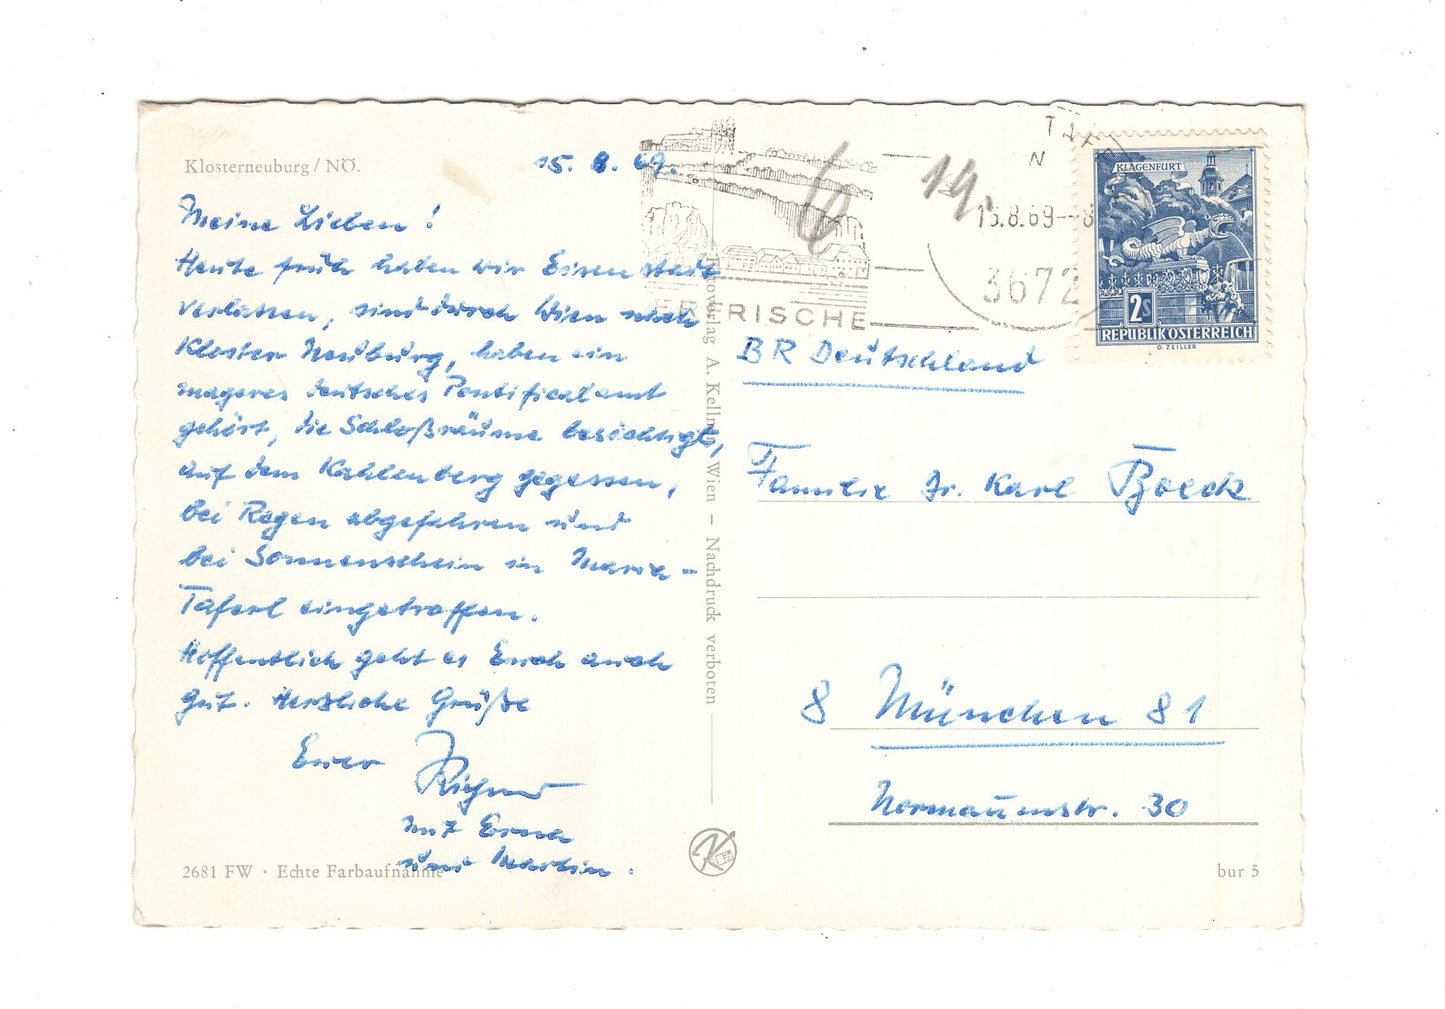 Klosterneuburg / NÖ.
15. 8. 69.
Meine Lieben !
Heute früh haben wir Eisenstadt
verlassen, sind durch Wien nach
Kloster Neuburg, haben ein
mageres deutsches Pontificalamt
gehört, die Schloßräume besichtigt,
auf dem Kahlenberg gegessen,
bei Regen abgefahren und
bei Sonnenschein in Maria-
Taferl eingetroffen.
Hoffentlich geht es Euch auch
gut. Herzliche Grüße
Euer
mit Erna
und Martin.
2681 FW · Echte Farbaufnahme
verlag A. Kellner, Wien – Nachdruck verboten
RISCHE
14.
15.8.69--8
3672
KLAGENFURT
2S
REPUBLIK ÖSTERREICH
O. ZEILLER
BR Deutschland
Familie Dr. Karl Boeck
8 München 81
30
bur 5